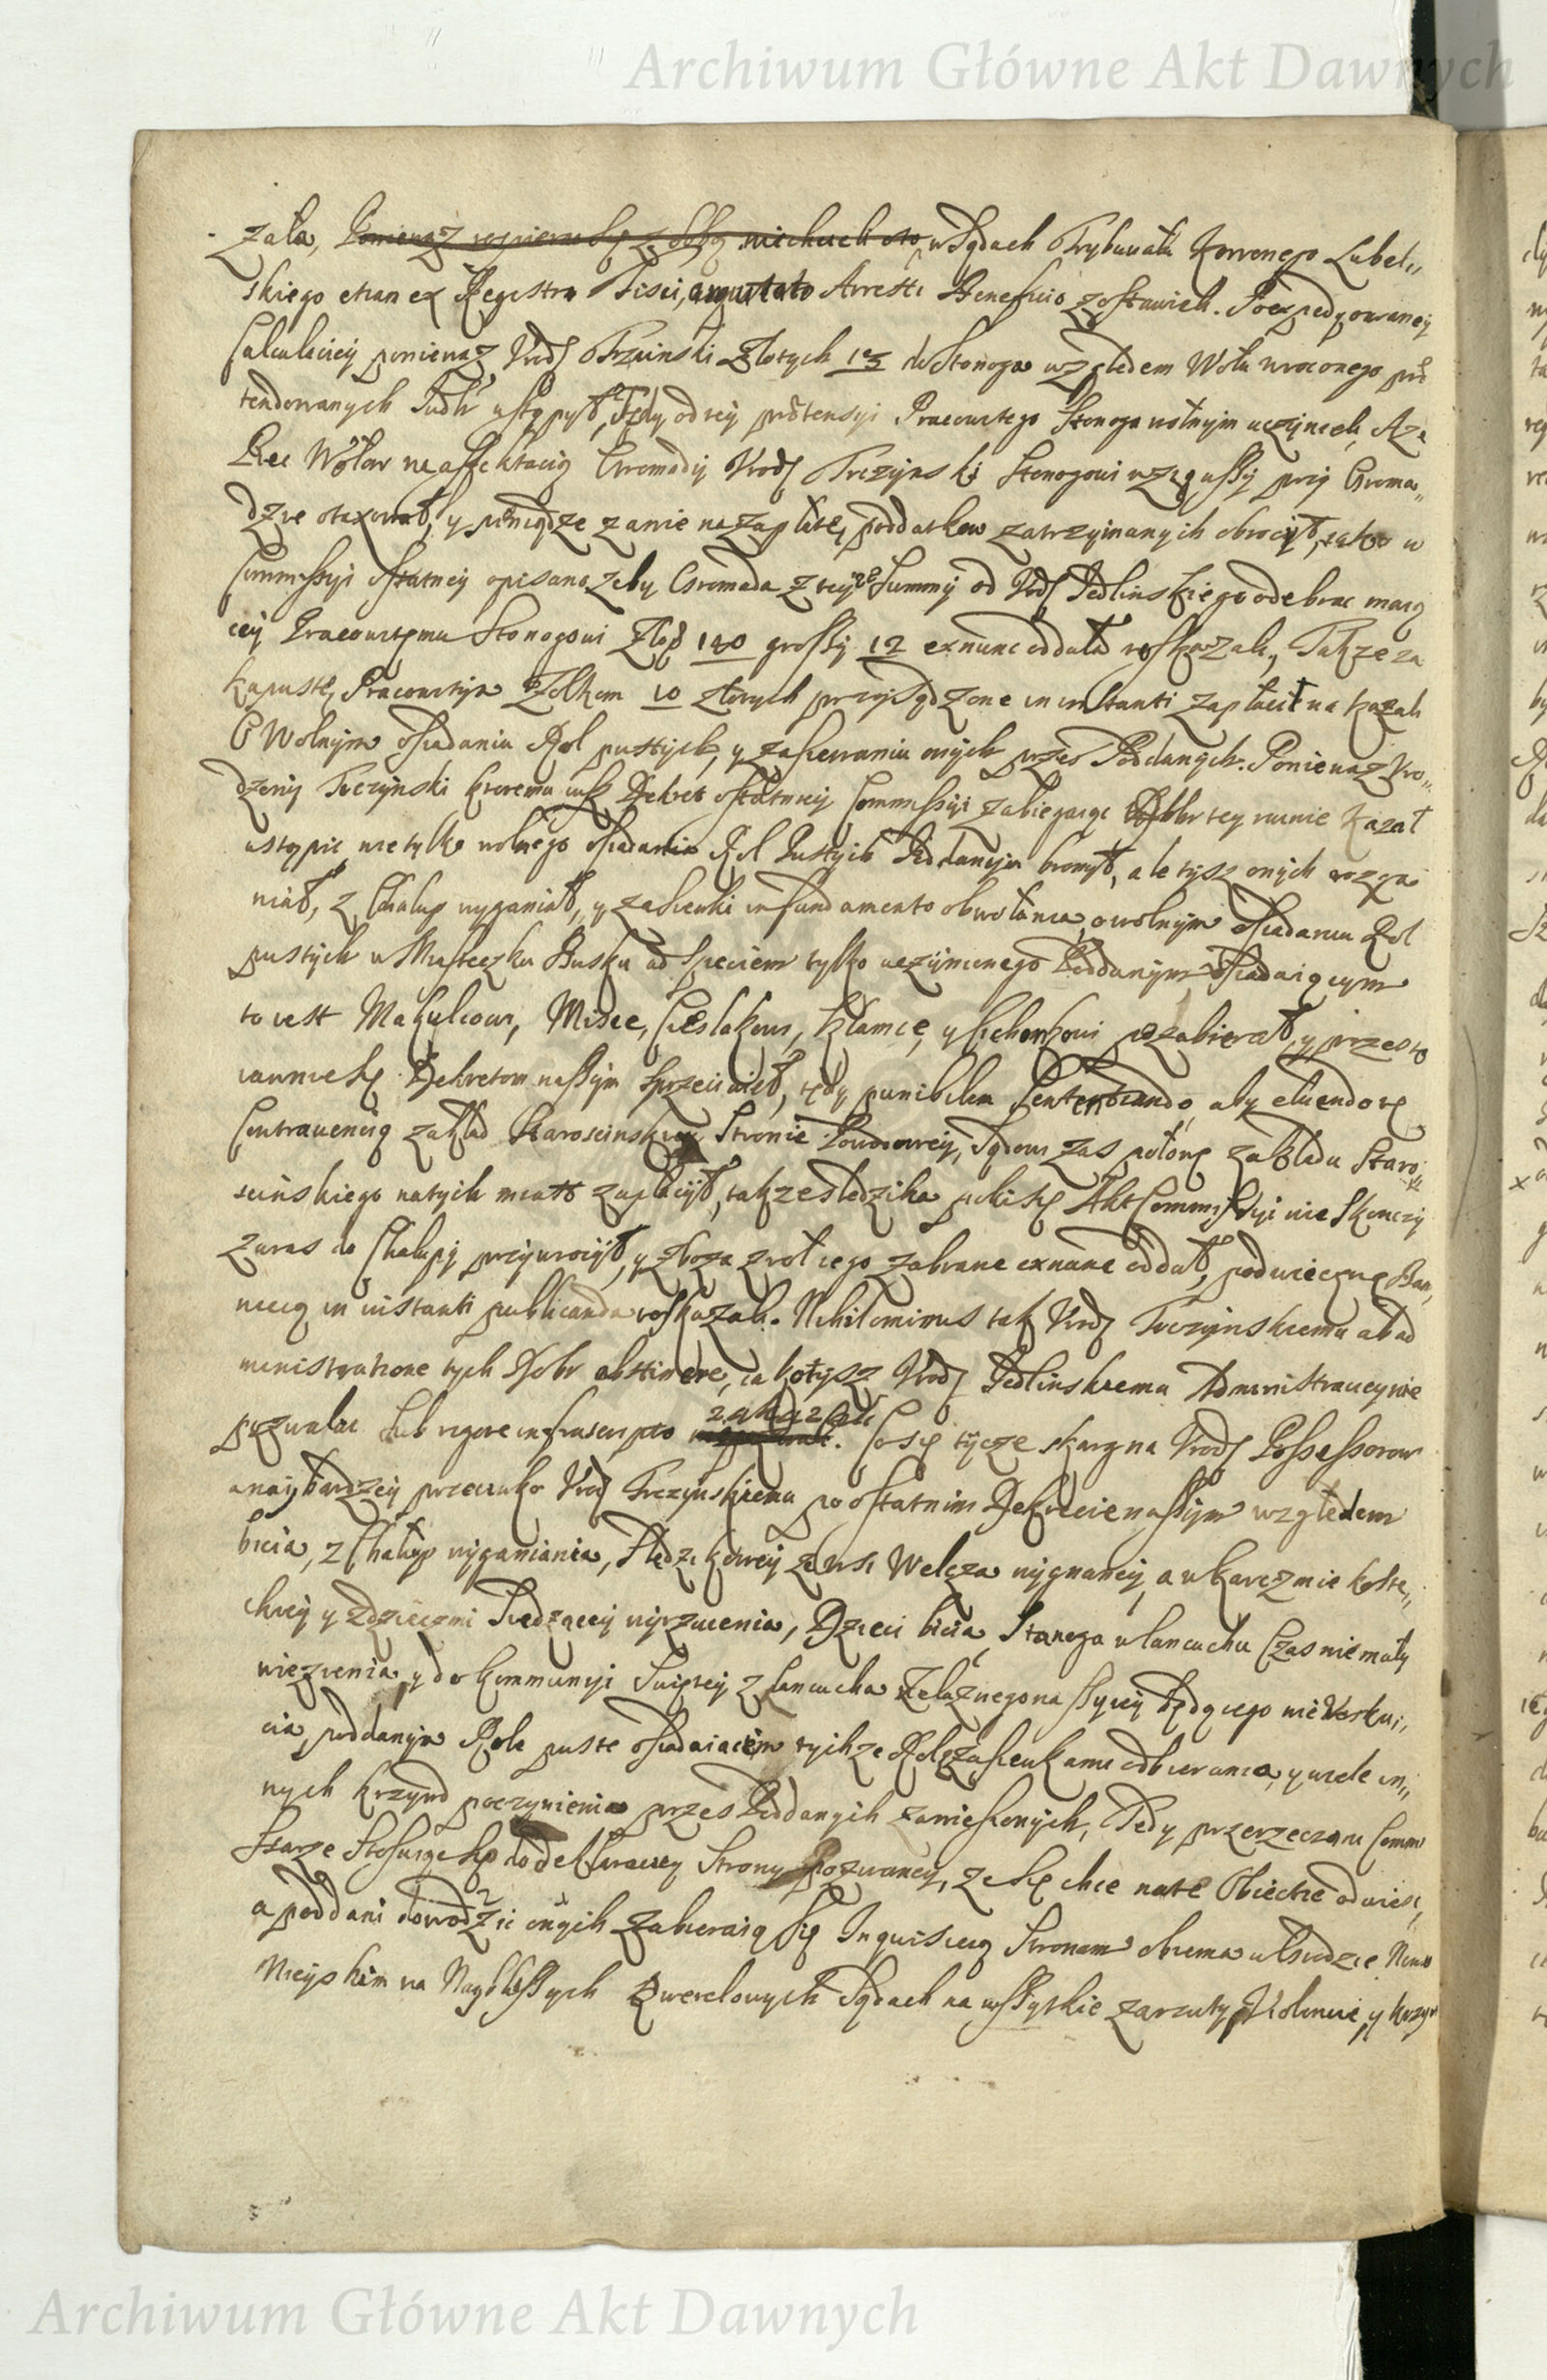 Archiwum Główne Akt Dawnych
zała, Ponieważ się z sobą niechcieli w Sądach Trybunału Koronnego Lubel„
skiego etiam ex Regestro Fisci, Arresti Beneficio zostawieli. Po expedyowaney
Calculaciey ponieważ Urodz Trzcinski Złotych 13 do Stonoga względem Wołu wroconego præ
tendowanych Sądu ustąpył, Tedy od tey prætensyi Pracowitego Stonoga wolnym uczynieli, A że
Pięc Wołow na affektacią Gromady Urodz Trczynski Stonogowi wziąwszy przy Groma„
dzie otaxował, y pieniądze za nie na zapłatę poddatkow zatrzymanych obrocył, iako w
Commissyi ostatniey opisano, zeby Gromada z teyze Summy od Urodz Jedlinskiego odebrac maią
cey Pracowitemu Stonogowi Złotych 140 groszy 12 exnunc oddała roskazali, Takze za
kapustę Pracowitym Zolkom 10 złotych przysądzone in instanti zapłacic nakazali
O Wolnym osiadaniu Rol pustych, y zasiewaniu onych przes Poddanych. Ponieważ Uro„
dzony Trczynski ktoremu iusz Dekret ostatniey Commissyi zabiegaiąc Dobr tey ruinie kazał
ustąpic, nie tylko wolnego osiadania Rol Pustych Poddanym bronył, ale tysz onych rozga
niał, z Chałup wyganiał, y zasiewki in fundamento obwołania o wolnym osiadaniu Rol
pustych w Miasteczku Busku ad speciem tylko uczynionego Poddanym osiadaiącym
to iest Makulcowi, Misce, Cieslakowi, Kłamcę, y Cichonkowi pozabierał, y przesto
iawnie się Dekretom naszym sprzeciwieł, tedy punibilem Sententiando aby eluendo tę
Contravencią zakład Staroscinskiey Stronie Powodowey, Sądowi zas połowę zakładu Staro„
scinskiego natych miast zapłacył, takze sledzika puki się Akt Commissyi nie skonczy
zaras do Chałupy przywrocył, y zboza z roł iego zabrane exnunc oddał, pod wieczną Ban„
niecią in instanti publicanda roskazali. Nihilominus tak Urodz Trczynskiemu ab ad
ministratione tych Dobr abstinere, iako tysz Urodz Jedlinskiemu Administracyi nie
pozwalac sub rigore infrascripto zakazali. Co się tycze skarg na Urodz Possessorow
a naybardziey przeciwko Urodz Trczynskiemu po ostatnim Dekrecie naszym względem
bicia, z Chałup wyganiania, Sledzikowey ze wsi Welcza wygnaney, a w karczmie
y z dziecmi Siedzącey wyrzucenia, Dzieci bicia, Stonoga w lancuchu Czas niemały
więzienia, y do Kommunyi Swiętey z Lancucha Zelaznego na Szyiey będącego nie
cia, poddanym Role puste osiadaiacem tychze Rol z zasiewkami odbierania, y wiele in„
nych krzywd poczynienia przes Poddanych zaniesionych, Tedy przerzeczoni Commi
ssarze Stosuiąc się do deklaraciey Strony pozwaney, ze się chce na te Obiectie odwiesc,
a poddani dowodzic onych zabieraią się Inquisicią Stronom obiema w Grodzie Nowo
Mieyskim na Naybliszych Querelowych Sądach na wszytkie zarzuty, Violencie, y krzyw
Archiwum Główne Akt Dawnych